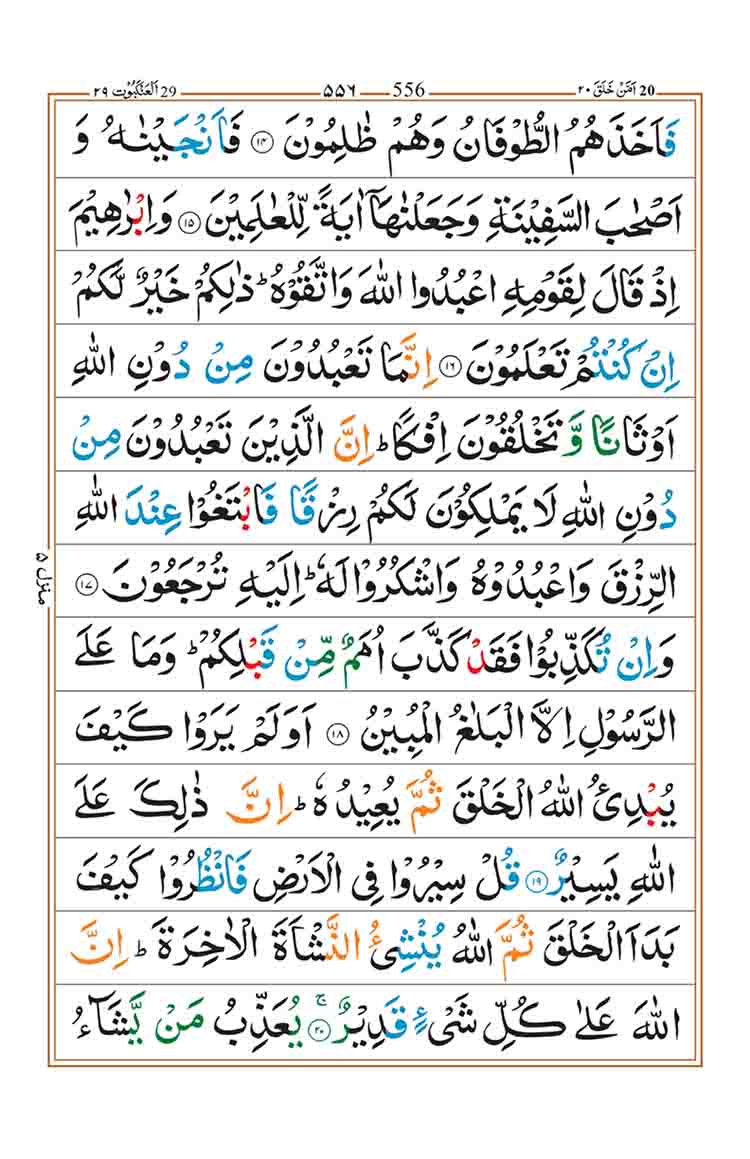 20 اَمَّنْ خَلَقَ ٢٠ 556 ٥٥٦ 29 اَلْعَنْكَبُوْت ٢٩
فَاَخَذَهُمُ الطُّوْفَانُ وَهُمْ ظٰلِمُوْنَ ١٤ فَاَنْجَيْنٰهُ وَ
اَصْحٰبَ السَّفِيْنَةِ وَجَعَلْنٰهَاۤ اٰيَةً لِّلْعٰلَمِيْنَ ١٥ وَاِبْرٰهِيْمَ
اِذْ قَالَ لِقَوْمِهِ اعْبُدُوا اللّٰهَ وَاتَّقُوْهُ ؕ ذٰلِكُمْ خَيْرٌ لَّكُمْ
اِنْ كُنْتُمْ تَعْلَمُوْنَ ١٦ اِنَّمَا تَعْبُدُوْنَ مِنْ دُوْنِ اللّٰهِ
اَوْثَانًا وَّ تَخْلُقُوْنَ اِفْكًا ؕ اِنَّ الَّذِيْنَ تَعْبُدُوْنَ مِنْ
دُوْنِ اللّٰهِ لَا يَمْلِكُوْنَ لَكُمْ رِزْقًا فَابْتَغُوْا عِنْدَ اللّٰهِ
الرِّزْقَ وَاعْبُدُوْهُ وَاشْكُرُوْا لَهٗ ؕ اِلَيْهِ تُرْجَعُوْنَ ١٧
وَاِنْ تُكَذِّبُوْا فَقَدْ كَذَّبَ اُمَمٌ مِّنْ قَبْلِكُمْ ؕ وَمَا عَلَى
الرَّسُوْلِ اِلَّا الْبَلٰغُ الْمُبِيْنُ ١٨ اَوَلَمْ يَرَوْا كَيْفَ
يُبْدِئُ اللّٰهُ الْخَلْقَ ثُمَّ يُعِيْدُهٗ ؕ اِنَّ ذٰلِكَ عَلَى
اللّٰهِ يَسِيْرٌ ١٩ قُلْ سِيْرُوْا فِى الْاَرْضِ فَانْظُرُوْا كَيْفَ
بَدَاَ الْخَلْقَ ثُمَّ اللّٰهُ يُنْشِئُ النَّشْاَةَ الْاٰخِرَةَ ؕ اِنَّ
اللّٰهَ عَلٰى كُلِّ شَىْءٍ قَدِيْرٌ ۚ ٢٠ يُعَذِّبُ مَنْ يَّشَآءُ
منزل ٥